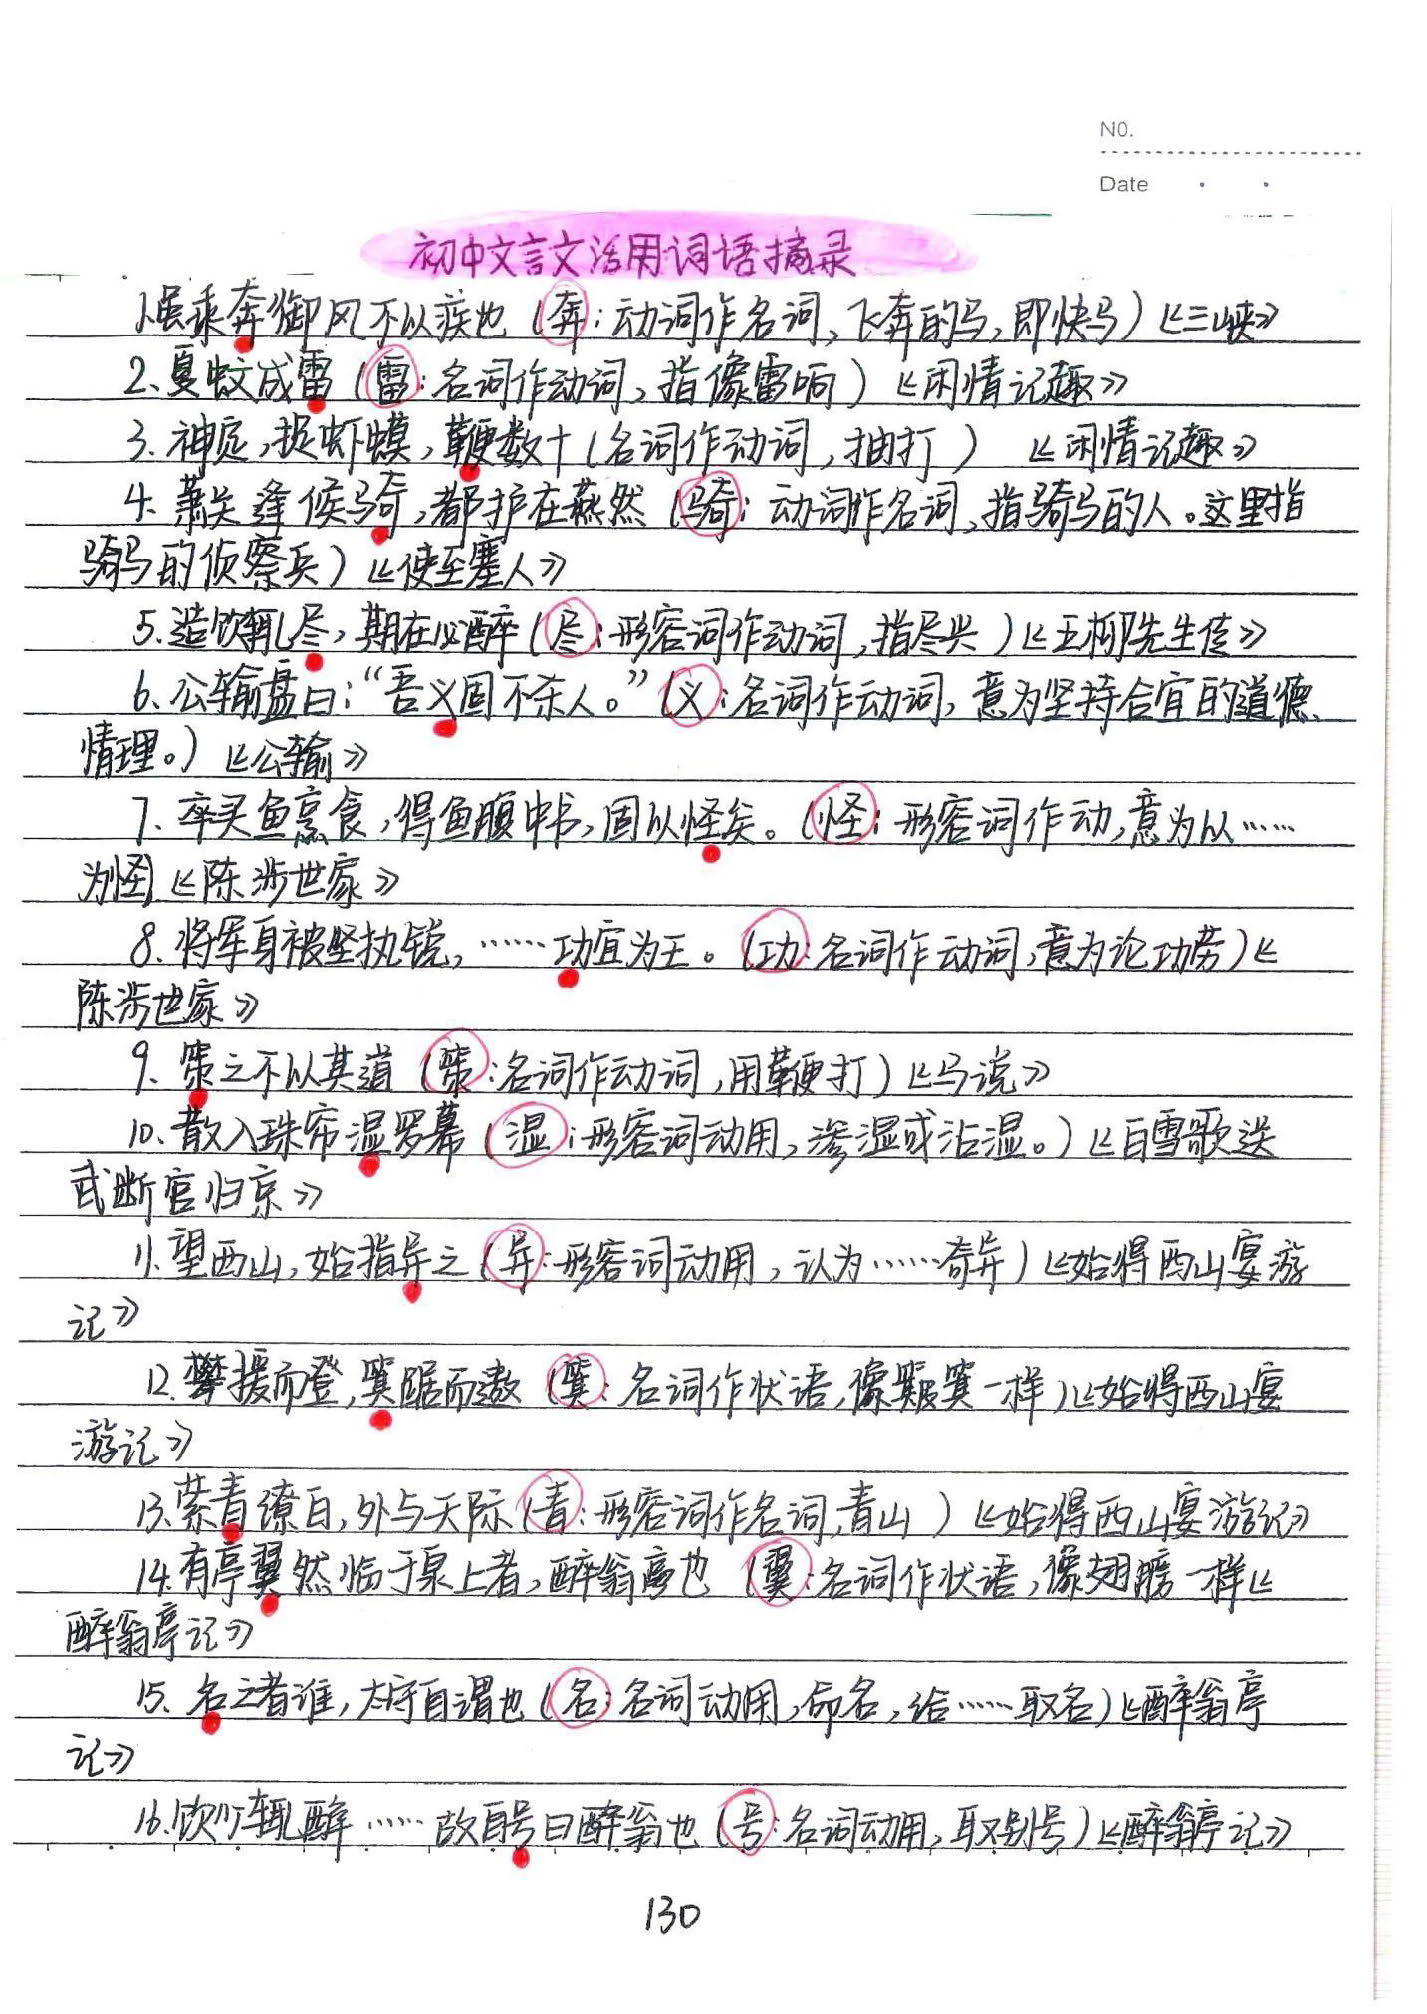 NO.
Date
初中文言文活用词语摘录
1.虽乘奔御风不以疾也(奔:动词作名词,飞奔的马,即快马)《三峡》
2、夏蚊成雷(雷:名词作动词,指像雷响)《闲情记趣》
3.神定,捉虾蟆,鞭数十(名词作动词,抽打)《闲情记趣》
4.萧关逢候骑,都护在燕然(骑:动词作名词,指骑马的人。这里指
骑马的侦察兵)《使至塞人》
5.造饮辄尽,期在必醉(尽:形容词作动词,指尽兴)《五柳先生传》
6、公输盘曰:“吾义固不杀人。”(义:名词作动词,意为坚持合宜的道德、
情理。)《公输》
7.卒买鱼烹食,得鱼腹中书,固以怪矣。(怪:形容词作动,意为以……
为怪《陈涉世家》
8、将军身被坚执锐,……功宜为王。(功:名词作动词,意为论功劳)《
陈涉世家》
9、策之不以其道(策:名词作动词,用鞭打)《马说》
10、散入珠帘湿罗幕(湿:形容词动用,渗湿或沾湿。)《白雪歌送
武断官归京》
11.望西山,始指异之(异:形容词动用,认为……奇异)《始得西山宴游
记》
12.攀援而登,箕踞而遨(箕:名词作状语,像簸箕一样)《始得西山宴
游记》
13、萦青缭白,外与天际(青:形容词作名词,青山)《始得西山宴游记》
14.有亭翼然临于泉上者,醉翁亭也(翼:名词作状语,像翅膀一样《
醉翁亭记》
15、名之者谁,太守自谓也(名:名词动用,命名,给……取名)《醉翁亭
记》
16.饮少辄醉……故自号曰醉翁也(号:名词动用,取别号)《醉翁亭记》
130